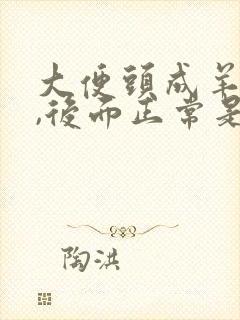 大便頭成羊
,後而正常是
陶洪